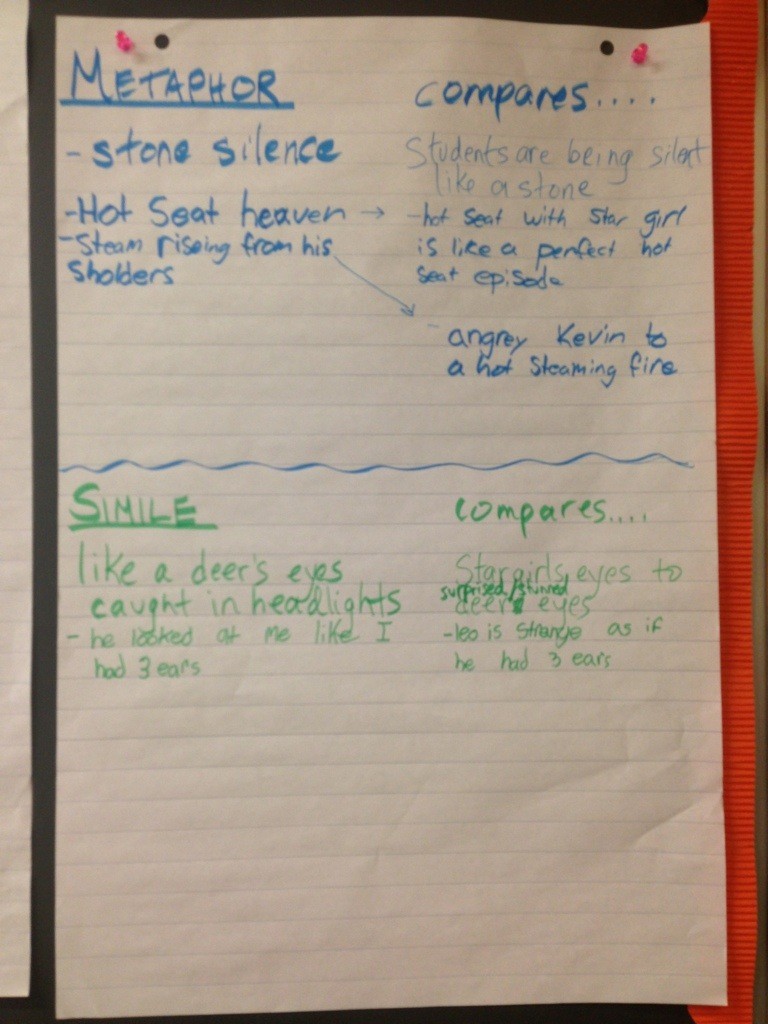 METAPHOR
- stone silence
- Hot Seat heaven →
- Steam riseing from his
Sholders
compares....
Students are being silent
like a stone
- hot seat with star girl
is like a perfect hot
seat episode
- angrey Kevin to
a hot steaming fire
SIMILE
like a deer's eyes
caught in headlights
- he looked at me like I
had 3 ears
compares....
Stargirls eyes to
surprised/stunned
deer's eyes
- leo is strange as if
he had 3 ears